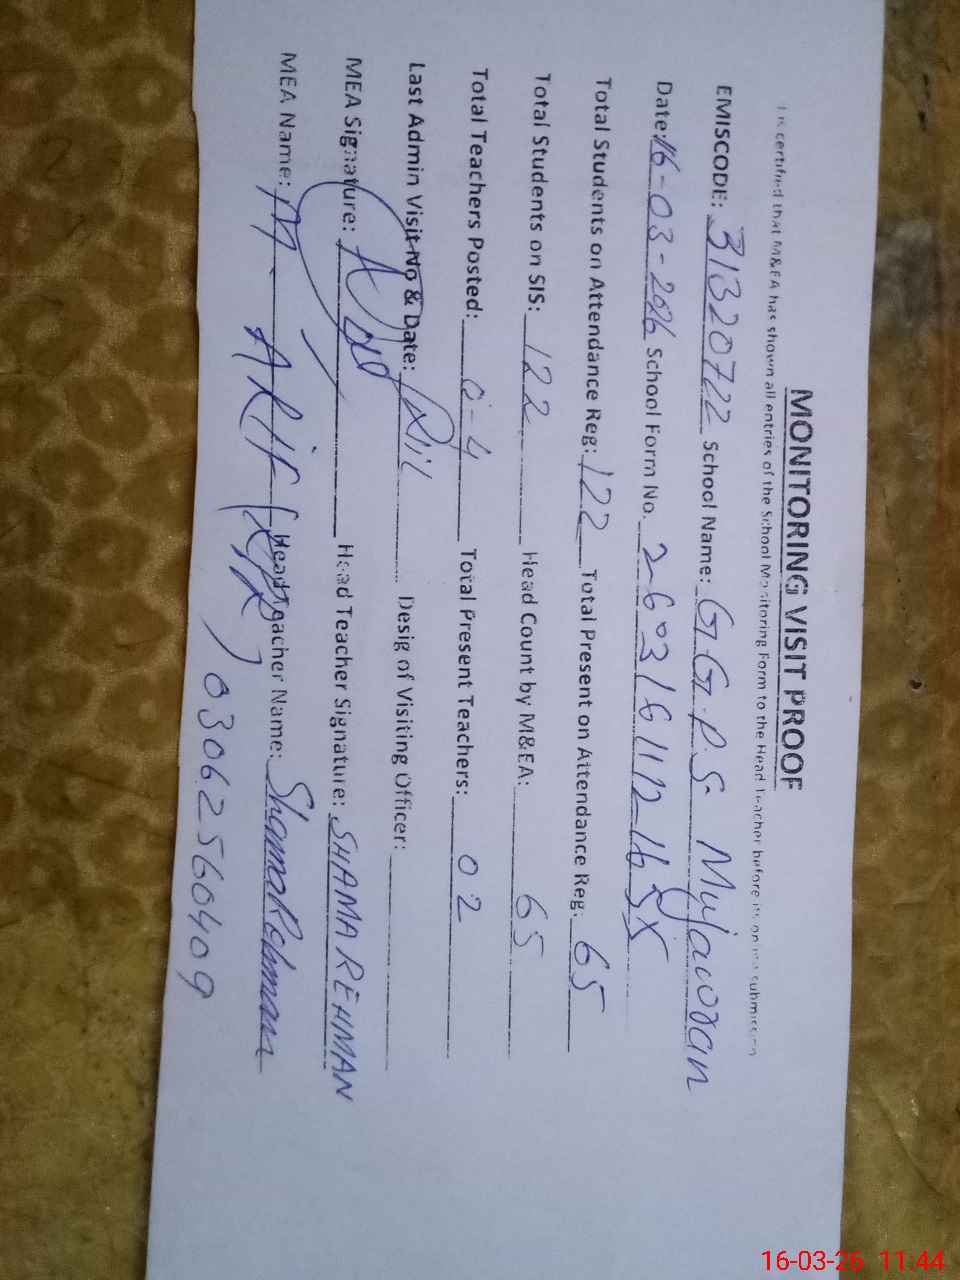 MONITORING VISIT PROOF
It is certified that M&EA has shown all entries of the School Monitoring Form to the Head Teacher before its online submission
EMISCODE: 31320722 School Name: G.G.P.S Mujaworan
Date: 16-03-2026 School Form No. 2603161112165X
Total Students on Attendance Reg: 122 Total Present on Attendance Reg: 65
Total Students on SIS: 122 Head Count by M&EA: 65
Total Teachers Posted: 0-4 Total Present Teachers: 02
Last Admin Visit No & Date: Nil Desig of Visiting Officer:
MEA Signature: Head Teacher Signature: SHAMA REHMAN
MEA Name: M. ARIF Head Teacher Name: Shama Rehman
03062560409
16-03-26 11:44